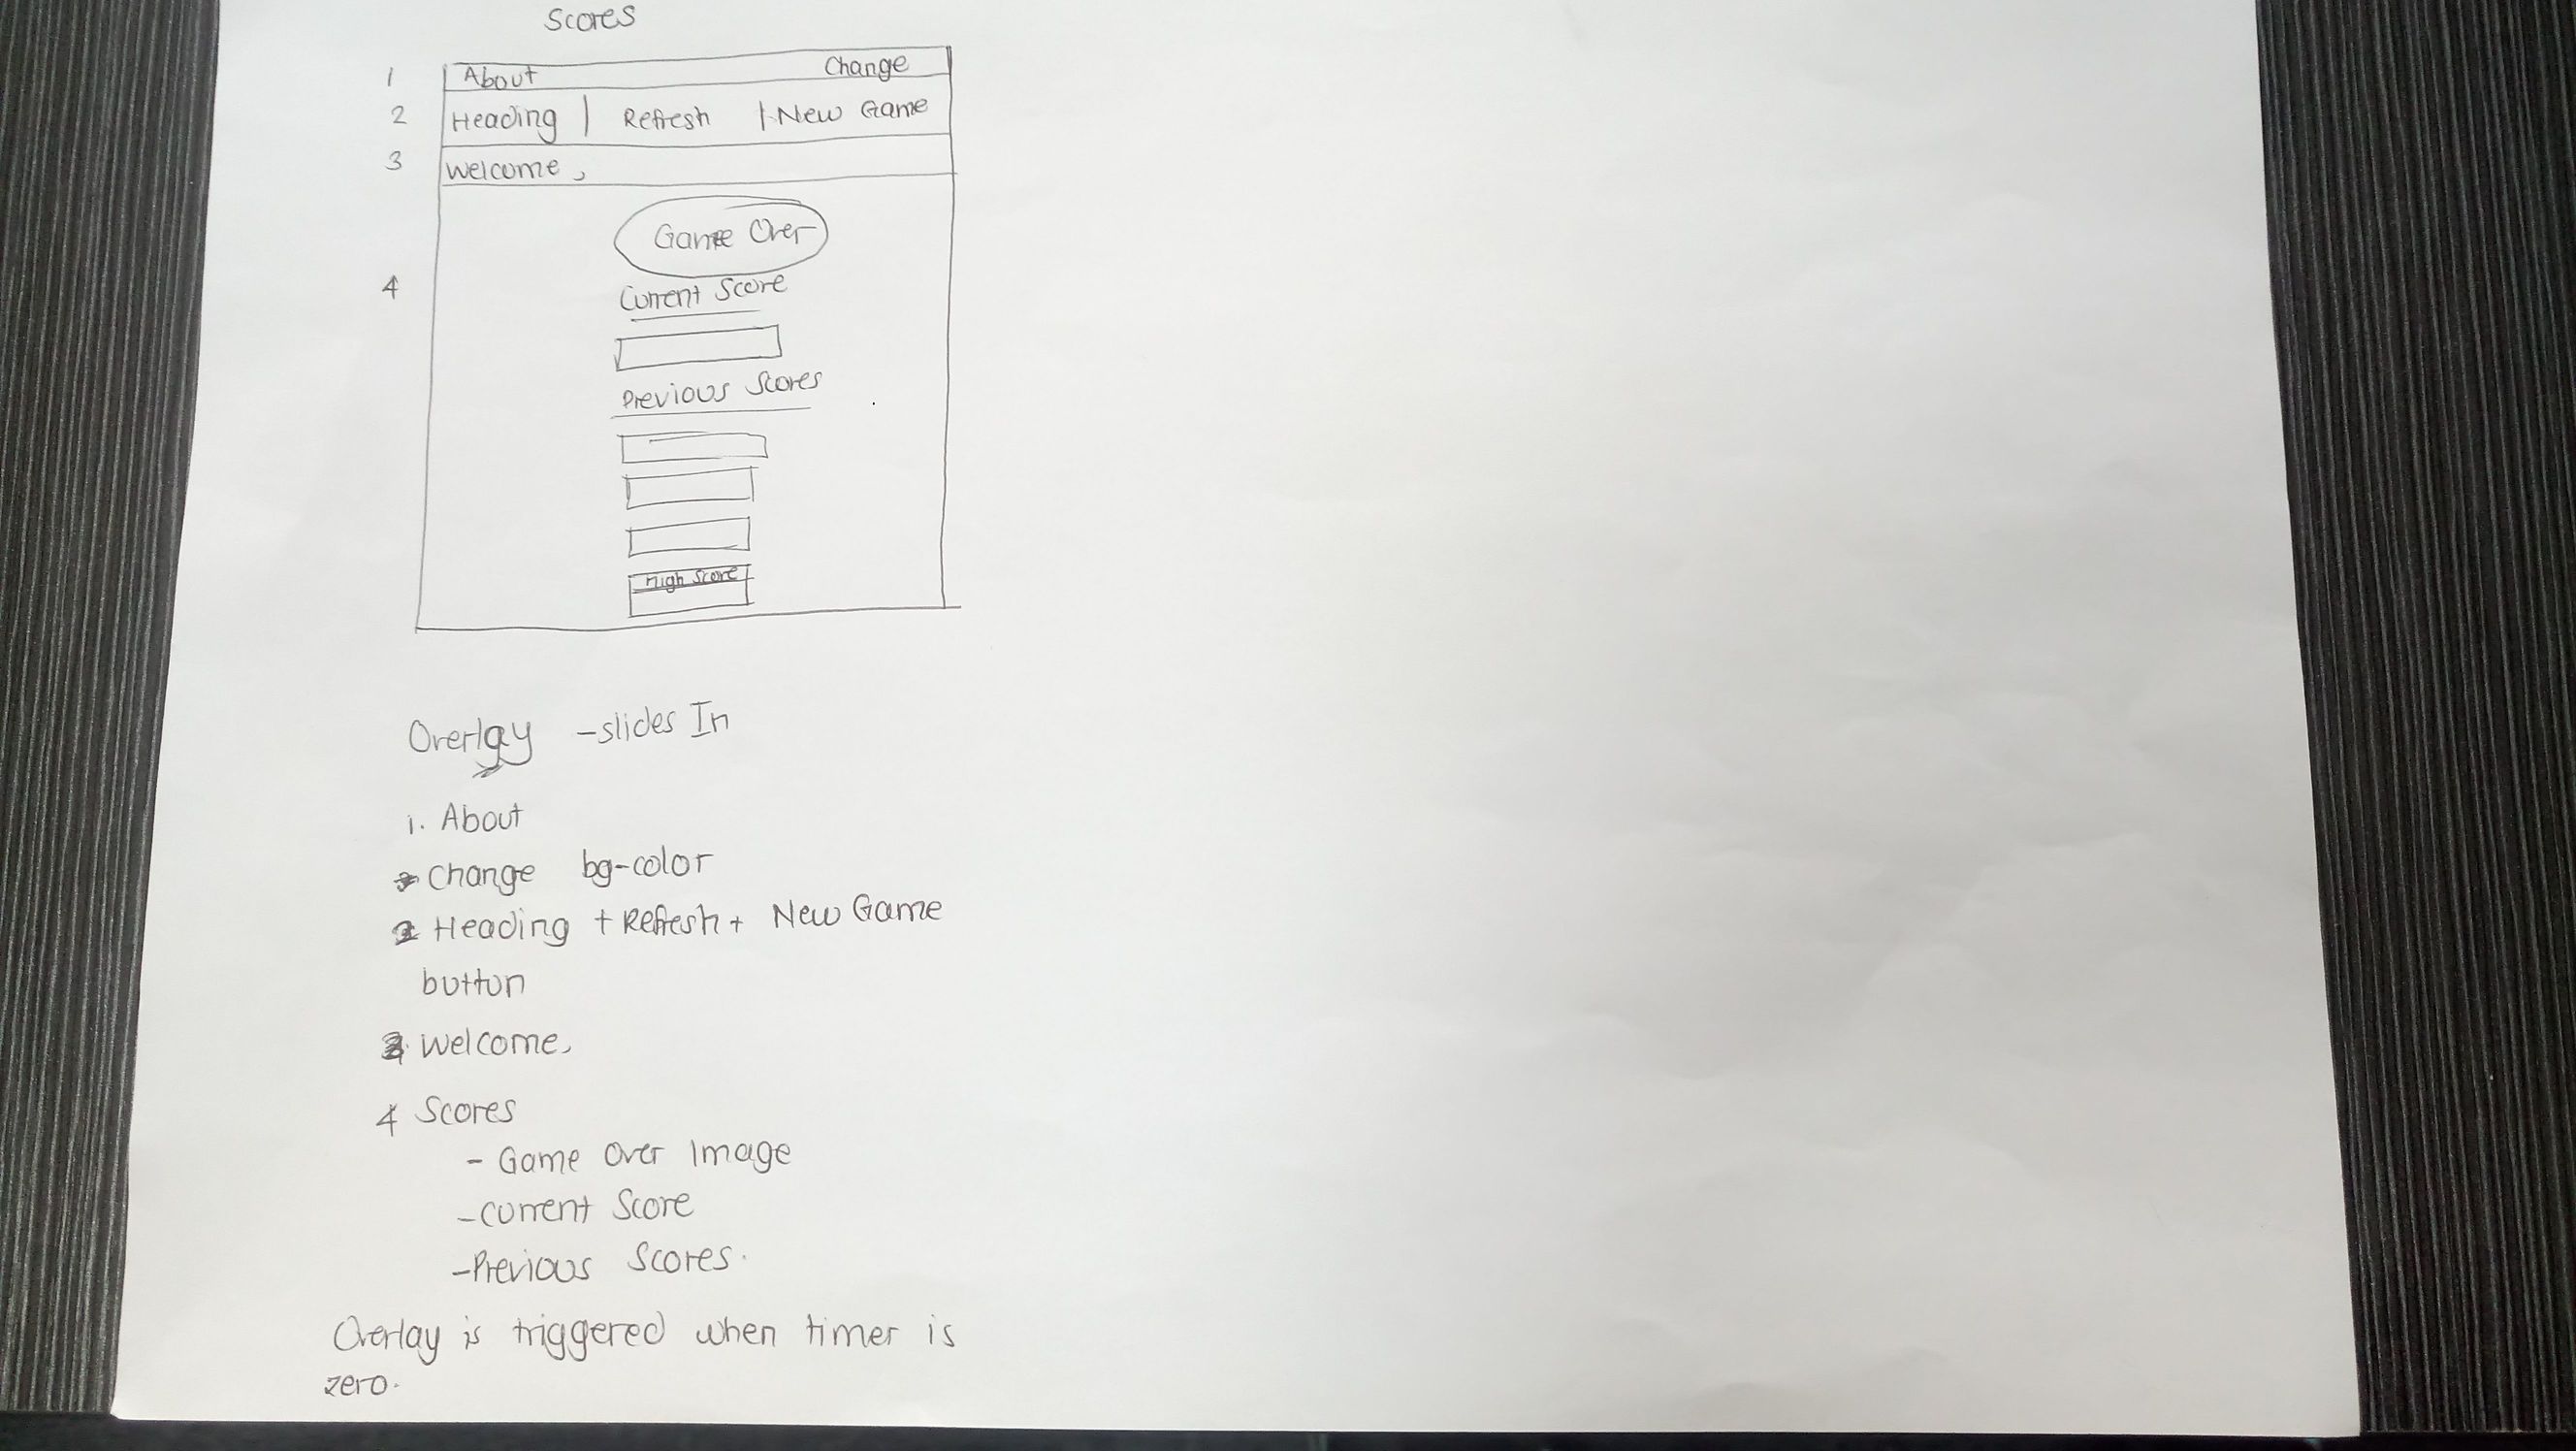 Scores
1 About Change
2 Heading | Refresh | New Game
3 Welcome,
Game Over
4 Current Score
Previous Scores
High Score
Overlay - slides In
1. About
Change bg-color
2 Heading + Refresh + New Game
button
3. Welcome,
4 Scores
- Game Over Image
- Current Score
- Previous Scores.
Overlay is triggered when timer is
zero.